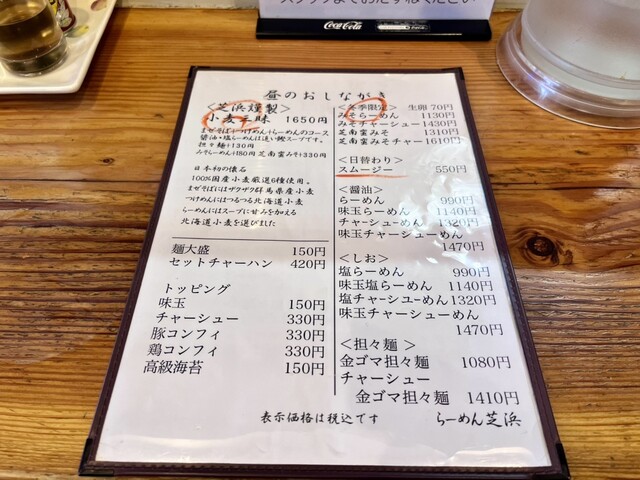 スタッフまでおたずねください
Coca-Cola
昼のおしながき
＜芝浜謹製＞
小麦三昧 1650円
まぜそば→つけめん→らーめんのコース
醤油・塩らーめんは追い鰹スープです。
担々麺+130円
みそらーめん+180円 芝南蛮みそ+330円
日本初の懐石
100%国産小麦厳選6種使用。
まぜそばにはザクザク群馬県産小麦
つけめんにはつるつる北海道小麦
らーめんにはスープに甘みを加える
北海道小麦を選びました
麺大盛 150円
セットチャーハン 420円
トッピング
味玉 150円
チャーシュー 330円
豚コンフィ 330円
鶏コンフィ 330円
高級海苔 150円
＜冬季限定＞ 生卵 70円
みそらーめん 1130円
みそチャーシュー1430円
芝南蛮みそ 1310円
芝南蛮みそチャー1610円
＜日替わり＞
スムージー 550円
＜醤油＞
らーめん 990円
味玉らーめん 1140円
チャーシューめん 1320円
味玉チャーシューめん
1470円
＜しお＞
塩らーめん 990円
味玉塩らーめん 1140円
塩チャーシューめん1320円
味玉チャーシューめん
1470円
＜担々麺＞
金ゴマ担々麺 1080円
チャーシュー
金ゴマ担々麺 1410円
表示価格は税込です
らーめん芝浜